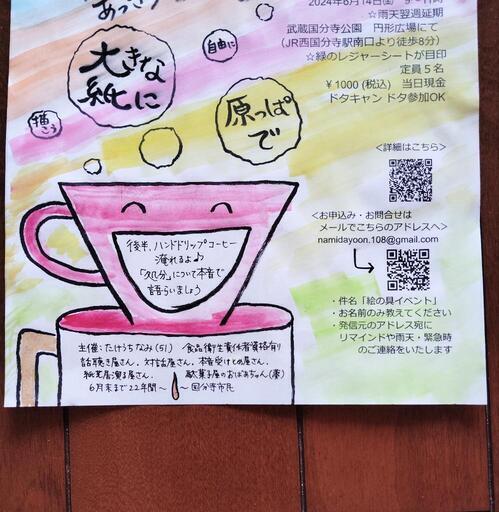 2024年6月14日(金)
☆雨天翌週延期
武蔵国分寺公園 円形広場にて
(JR西国分寺駅南口より徒歩8分)
☆緑のレジャーシートが目印
定員5名
¥1000(税込) 当日現金
ドタキャン ドタ参加OK
大きな
紙に
自由に
描こう
原っぱ
で
<詳細はこちら>
<お申込み・お問合せは
メールでこちらのアドレスへ>
namidayoon.108@gmail.com
・件名「絵の具イベント」
・お名前のみ教えてください
・発信元のアドレス宛に
リマインドや雨天・緊急時
のご連絡をいたします
後半、ハンドドリップコーヒー
淹れるよ♪
「処分」について本音で
語らいましょう
主催:たけうちなみ(51) 食品衛生責任者資格有り
話聴き屋さん、対話屋さん、本音受けとめ屋さん、
紙芝居演じ屋さん、駄菓子屋のおばあちゃん(夢)
6月末まで22年間〜 〜国分寺市民